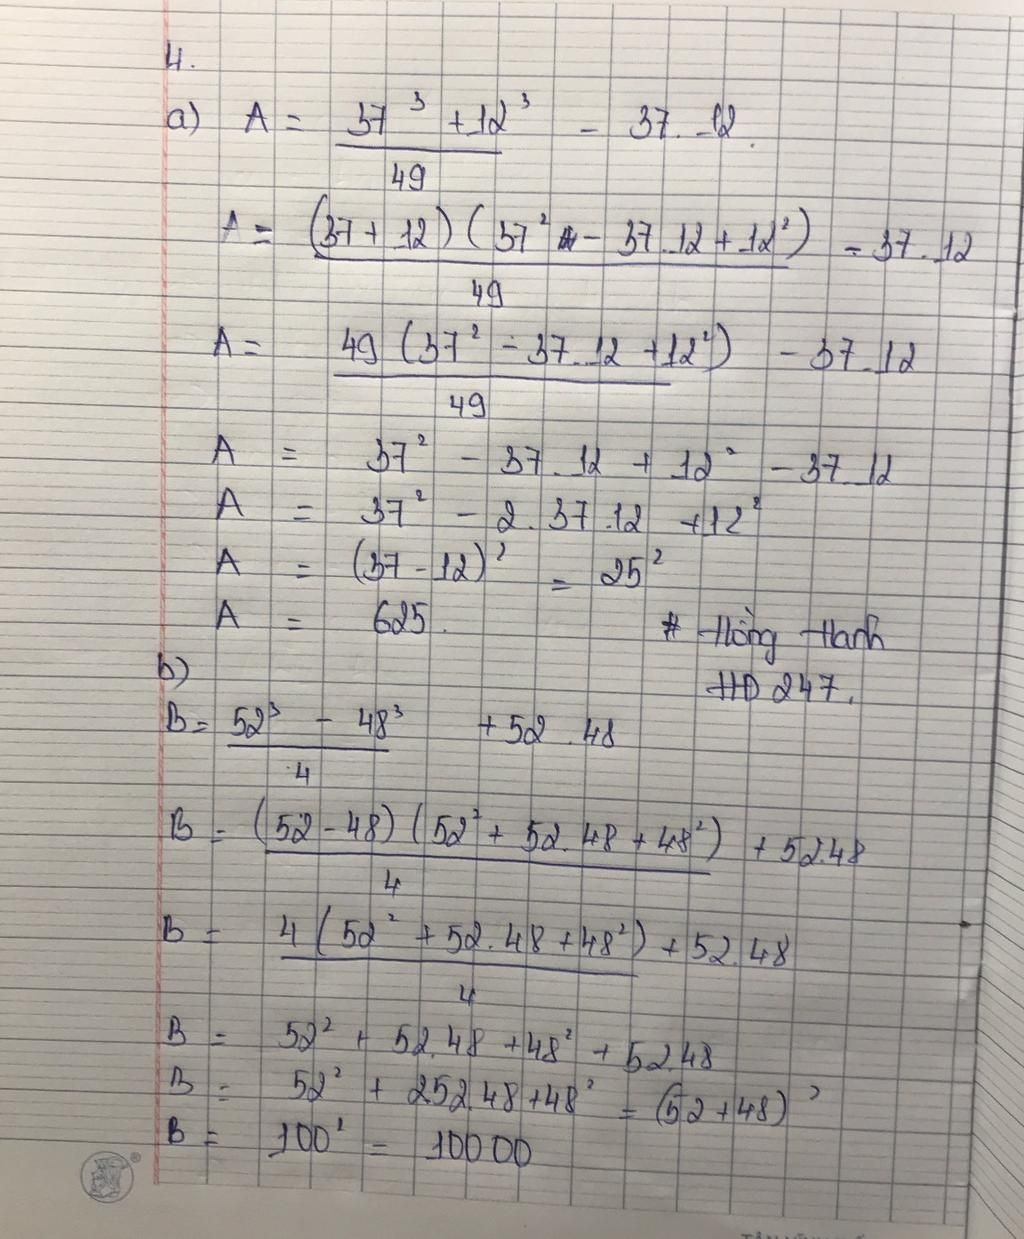 4.
a) A = (37³ + 12³)/49 - 37.12
A = ((37 + 12)(37² - 37.12 + 12²))/49 - 37.12
A = (49(37² - 37.12 + 12²))/49 - 37.12
A = 37² - 37.12 + 12² - 37.12
A = 37² - 2.37.12 + 12²
A = (37 - 12)² = 25²
A = 625.
# Hồng Hanh
HD 247.
b)
B = (52³ - 48³)/4 + 52.48
B = ((52 - 48)(52² + 52.48 + 48²))/4 + 52.48
B = (4(52² + 52.48 + 48²))/4 + 52.48
B = 52² + 52.48 + 48² + 52.48
B = 52² + 2.52.48 + 48² = (52 + 48)²
B = 100² = 10000